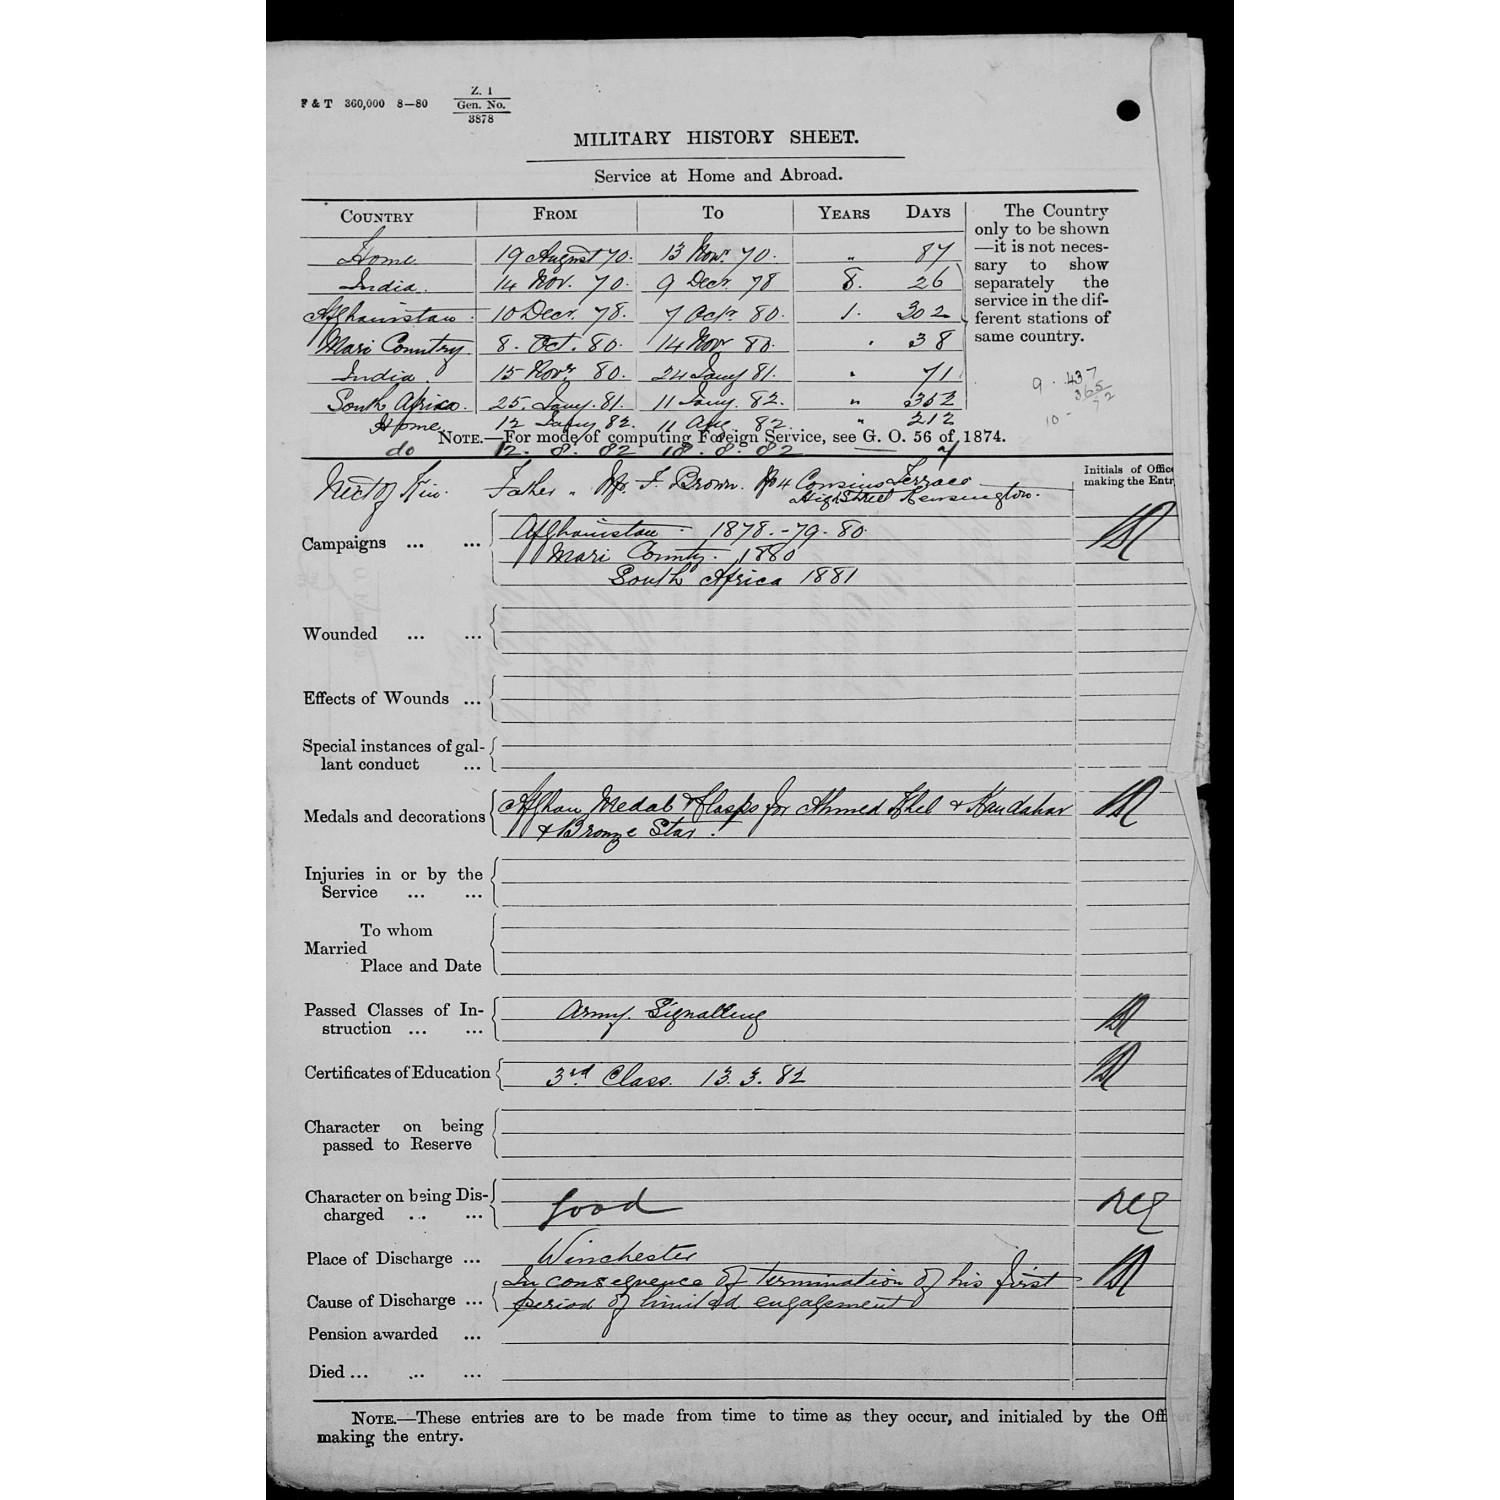 F & T 360,000 8—80
Z. 1
Gen. No.
3878
MILITARY HISTORY SHEET.
Service at Home and Abroad.
COUNTRY FROM TO YEARS DAYS
Home 19 August 70. 13 Novr. 70. " 87
India. 14 Nov. 70. 9 Decr. 78 8. 26
Afghanistan. 10 Decr. 78. 7 Octr. 80. 1. 302
Mari Country 8. Oct. 80. 14 Novr 80. " 38
India. 15 Novr. 80. 24 Jany 81. " 71
South Africa. 25. Jany. 81. 11 Jany. 82. " 352
Home 12 Jany 82. 11 Aug. 82. " 212
The Country
only to be shown
—it is not neces-
sary to show
separately the
service in the dif-
ferent stations of
same country.
9 . 437
365
10 - 72
NOTE.—For mode of computing Foreign Service, see G. O. 56 of 1874.
do 12. 8. 82 18. 8. 82 7
Initials of Offic
making the Entr
Next of Kin. Father " Mr. F. Brown. No 4 Cousins Terrace
High Street Kensington.
Campaigns ... ... Afghanistan 1878.-79.-80.
Mari County. 1880
South Africa 1881
Wounded ... ...
Effects of Wounds ...
Special instances of gal-
lant conduct ...
Medals and decorations Afghan Medal & Clasps for Ahmed Khel & Kandahar
& Bronze Star.
Injuries in or by the
Service ... ...
To whom
Married
Place and Date
Passed Classes of In-
struction ... ... Army Signalling
Certificates of Education 3rd Class. 13. 3. 82
Character on being
passed to Reserve
Character on being Dis-
charged ... ... Good
Place of Discharge ... Winchester
Cause of Discharge ... In consequence of termination of his first
period of limited engagement
Pension awarded ...
Died ... ... ...
NOTE.—These entries are to be made from time to time as they occur, and initialed by the Off
making the entry.